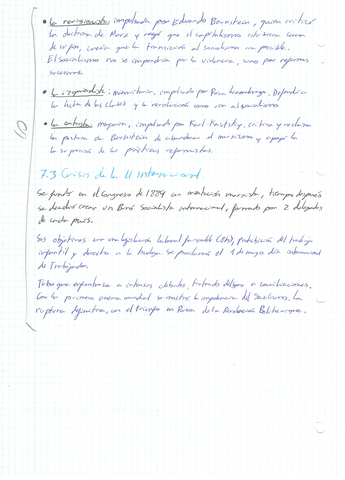 • La revisionista: impulsada por Eduardo Bernstein, quien criticó
la doctrina de Marx y negó que el capitalismo estuviera cerca
de su fin, creía que la transición al socialismo era posible.
El socialismo no se impondría por la violencia, sino por reformas
sucesivas.
• La izquierdista: minoritaria, impulsada por Rosa Luxemburgo. Defendía
la lucha de las clases y la revolución como vía al socialismo.
• La centrista: mayoritaria, impulsada por Karl Kautsky, critica y rechaza
la postura de Bernstein de abandonar el marxismo y apoyó la
la supresión de las prácticas reformistas.
10
7.3 Crisis de la II Internacional
Se fundó en el Congreso de 1889 con orientación marxista, tiempo después
se decidió crear un Buró Socialista internacional, formado por 2 delegados
de cada país.
Sus objetivos eran una legislación laboral favorable (8h), prohibición del trabajo
infantil y derecho a la huelga. Se proclamó el 1 de mayo día internacional
de Trabajador.
Tuvo que enfrentarse a intensos debates, tratando de llegar a conciliaciones.
Con la primera guerra mundial se mostró la impotencia del Socialismo. La
ruptura definitiva, con el triunfo en Rusia de la Revolución Bolchevique.